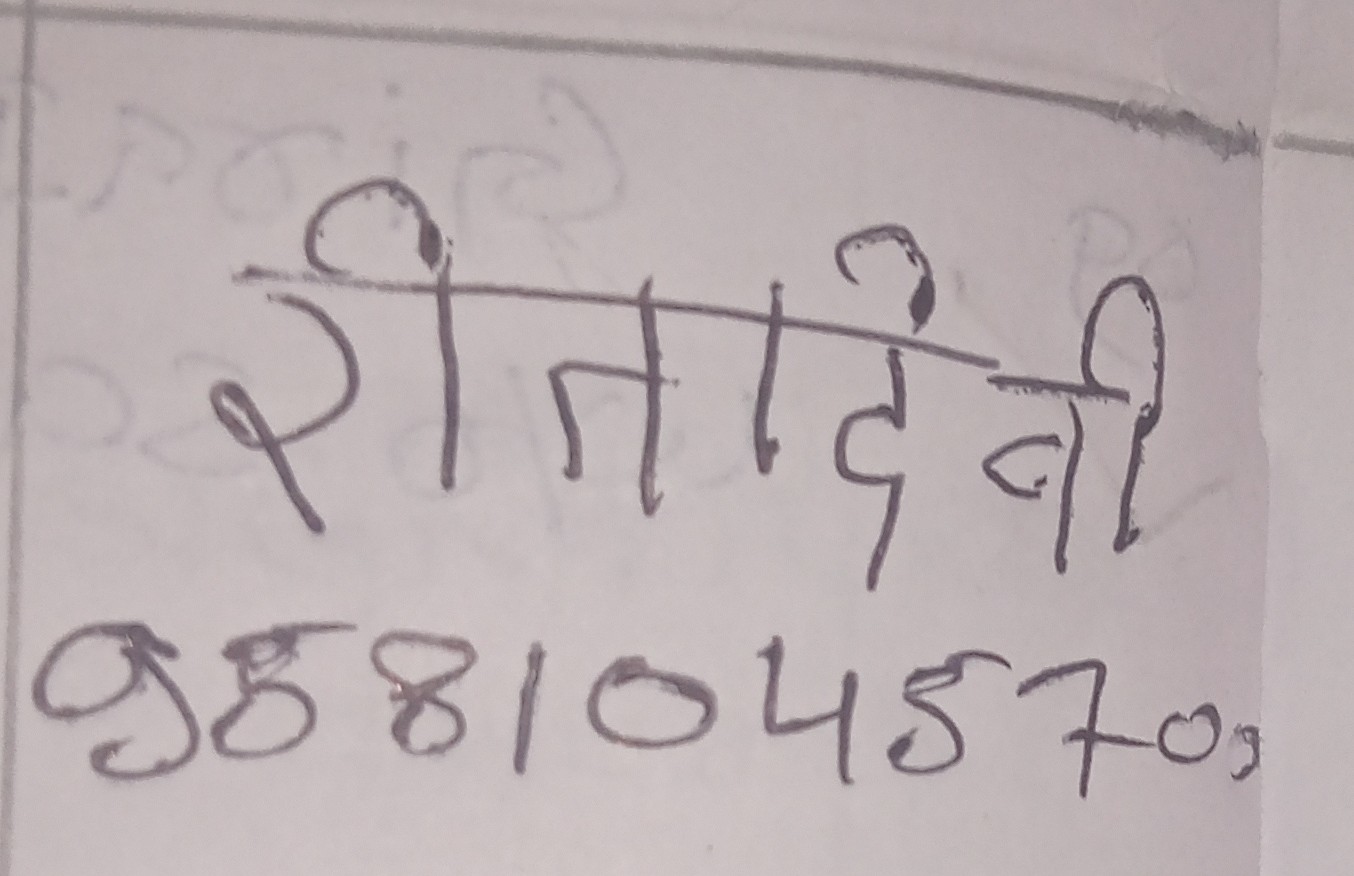 रीता देवी
988104570,